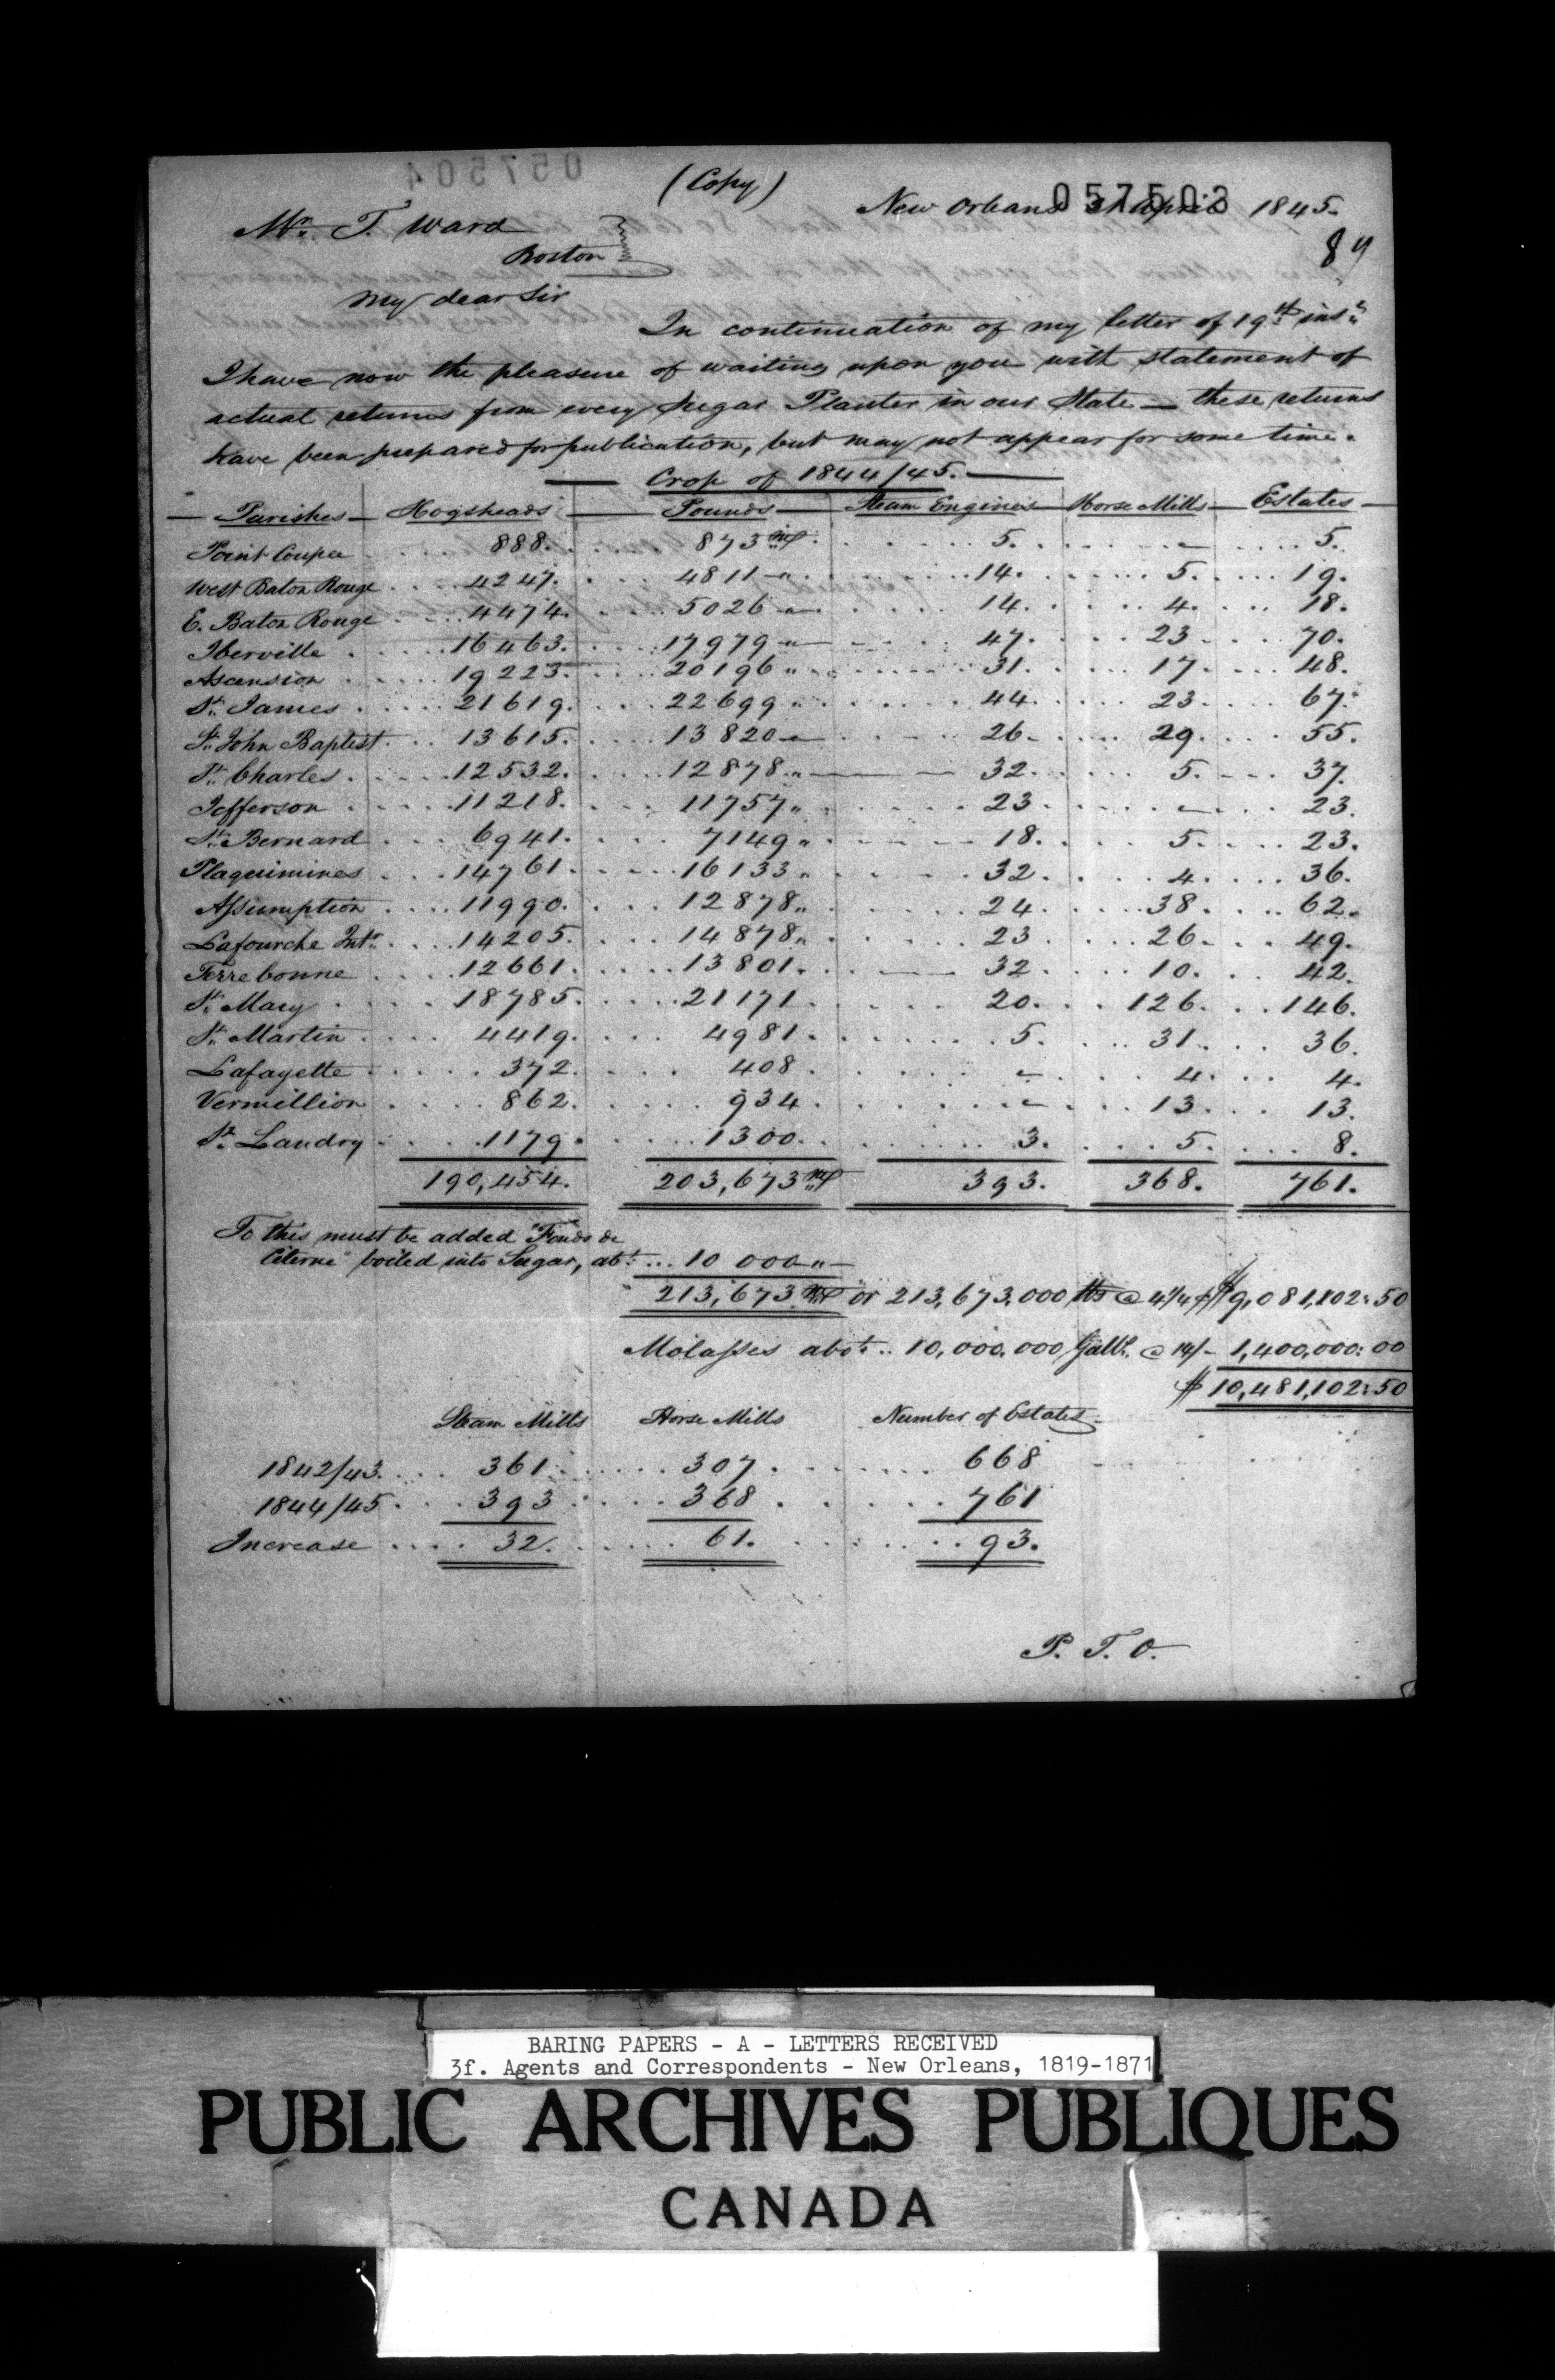 057504
(Copy)
057503
New Orleans April 1845.
Mr. T. Ward
Boston
My dear Sir
In continuation of my letter of 19th inst.
I have now the pleasure of waiting upon you with statement of
actual returns from every Sugar Planter in our State — these returns
have been prepared for publication, but may not appear for some time.
Crop of 1844/45.
Parishes Hogsheads Pounds Steam Engines Horse Mills Estates
Point Coupee 888. 873 m/ 5. - 5.
West Baton Rouge 4247. 4811 " 14. 5. 19.
E. Baton Rouge 4474. 5026 " 14. 4. 18.
Iberville 16463. 17979 " 47. 23 70.
Ascension 19223. 20196 " 31. 17. 48.
St. James 21619. 22699 " 44. 23. 67.
St. John Baptist 13615. 13820 " 26 29. 55.
St. Charles 12532. 12878 " 32. 5. 37.
Jefferson 11218. 11757 " 23. - 23.
St. Bernard 6941. 7149 " 18. 5. 23.
Plaquimines 14761. 16133 " 32. 4. 36.
Assumption 11990. 12878 " 24. 38. 62.
Lafourche Intr. 14205. 14878 " 23 26. 49.
Terrebonne 12661. 13801. 32. 10. 42.
St. Mary 18785. 21171 20. 126. 146.
St. Martin 4419. 4981. 5. 31. 36.
Lafayette 372. 408. - 4. 4.
Vermillion 862. 934. - 13. 13.
St. Landry 1179. 1300. 3. 5. 8.
190,454. 203,673 m/ 393. 368. 761.
To this must be added "Fonds de
Citerne" boiled into Sugar, abt. 10 000 "
213,673 m/ or 213,673,000 lbs @ 4 1/4 ¢ $9,081,102:50
Molasses abot. 10,000,000 Galls. @ 14/- 1,400,000:00
$10,481,102:50
Steam Mills Horse Mills Number of Estates
1842/43. 361. 307. 668
1844/45. 393 368. 761
Increase 32. 61. 93.
P. T. O.
BARING PAPERS - A - LETTERS RECEIVED
3f. Agents and Correspondents - New Orleans, 1819-1871
PUBLIC ARCHIVES PUBLIQUES
CANADA